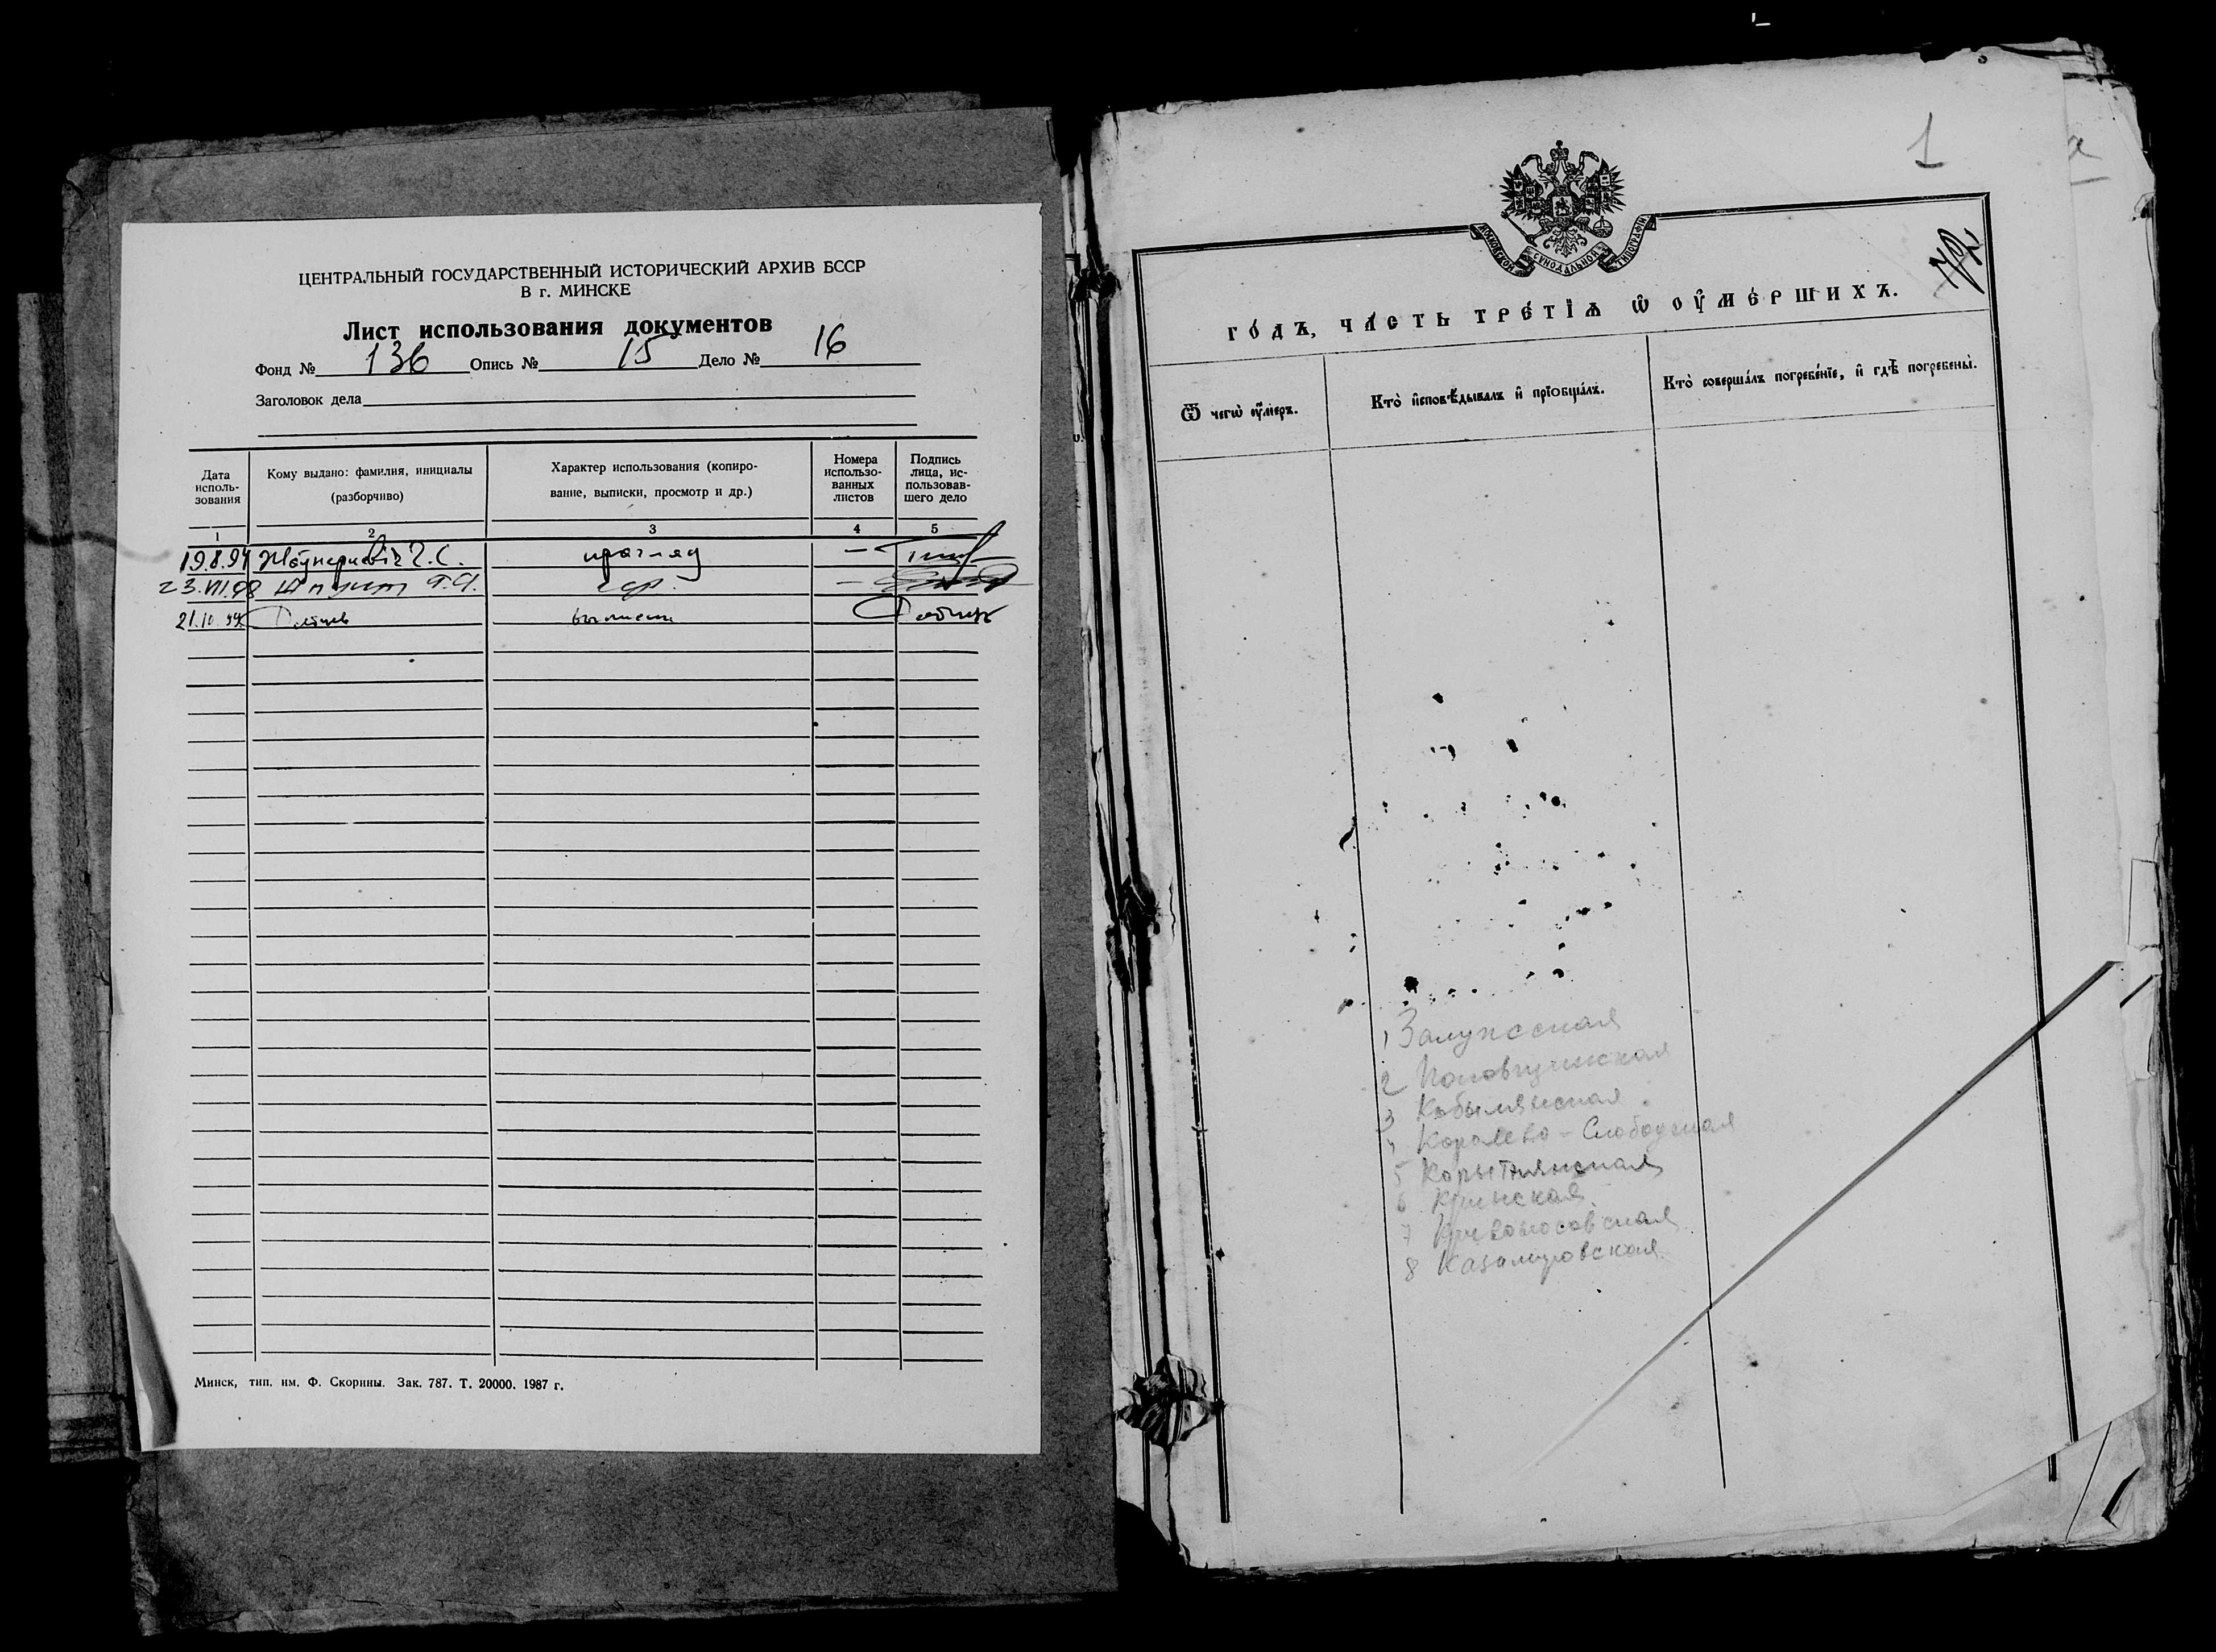 ЦЕНТРАЛЬНЫЙ ГОСУДАРСТВЕННЫЙ ИСТОРИЧЕСКИЙ АРХИВ БССР
В г. МИНСКЕ
Лист использования документов
Фонд № 136 Опись № 15 Дело № 16
Заголовок дела
Дата исполь-зования
Кому выдано: фамилия, инициалы (разборчиво)
Характер использования (копиро-вание, выписки, просмотр и др.)
Номера использо-ванных листов
Подпись лица, ис-пользовав-шего дело
1 2 3 4 5
19.8.94 прагляд –
23.VII.98 –
21.10.99
Минск, тип. им. Ф. Скорины. Зак. 787. Т. 20000. 1987 г.
1
МОСКОВСКОЙ СѴНОДАЛЬНОЙ ТИПОГРАФІИ
го́дъ, ча́сть тре́тїѧ ѡ҆ оу҆ме́ршихъ.
Ѿ чегѡ̀ оу҆́меръ.
Кто̀ и҆сповѣ́дывалъ и҆ прїѡбща́лъ.
Кто̀ соверша́лъ погребе́нїе, и҆ гдѣ̀ погребены̀.
1 Залужская
2
3 Кобылянская
4 Королево-Слободская
5 Корытнянская
6
7 Кривоносовская
8 Казимировская